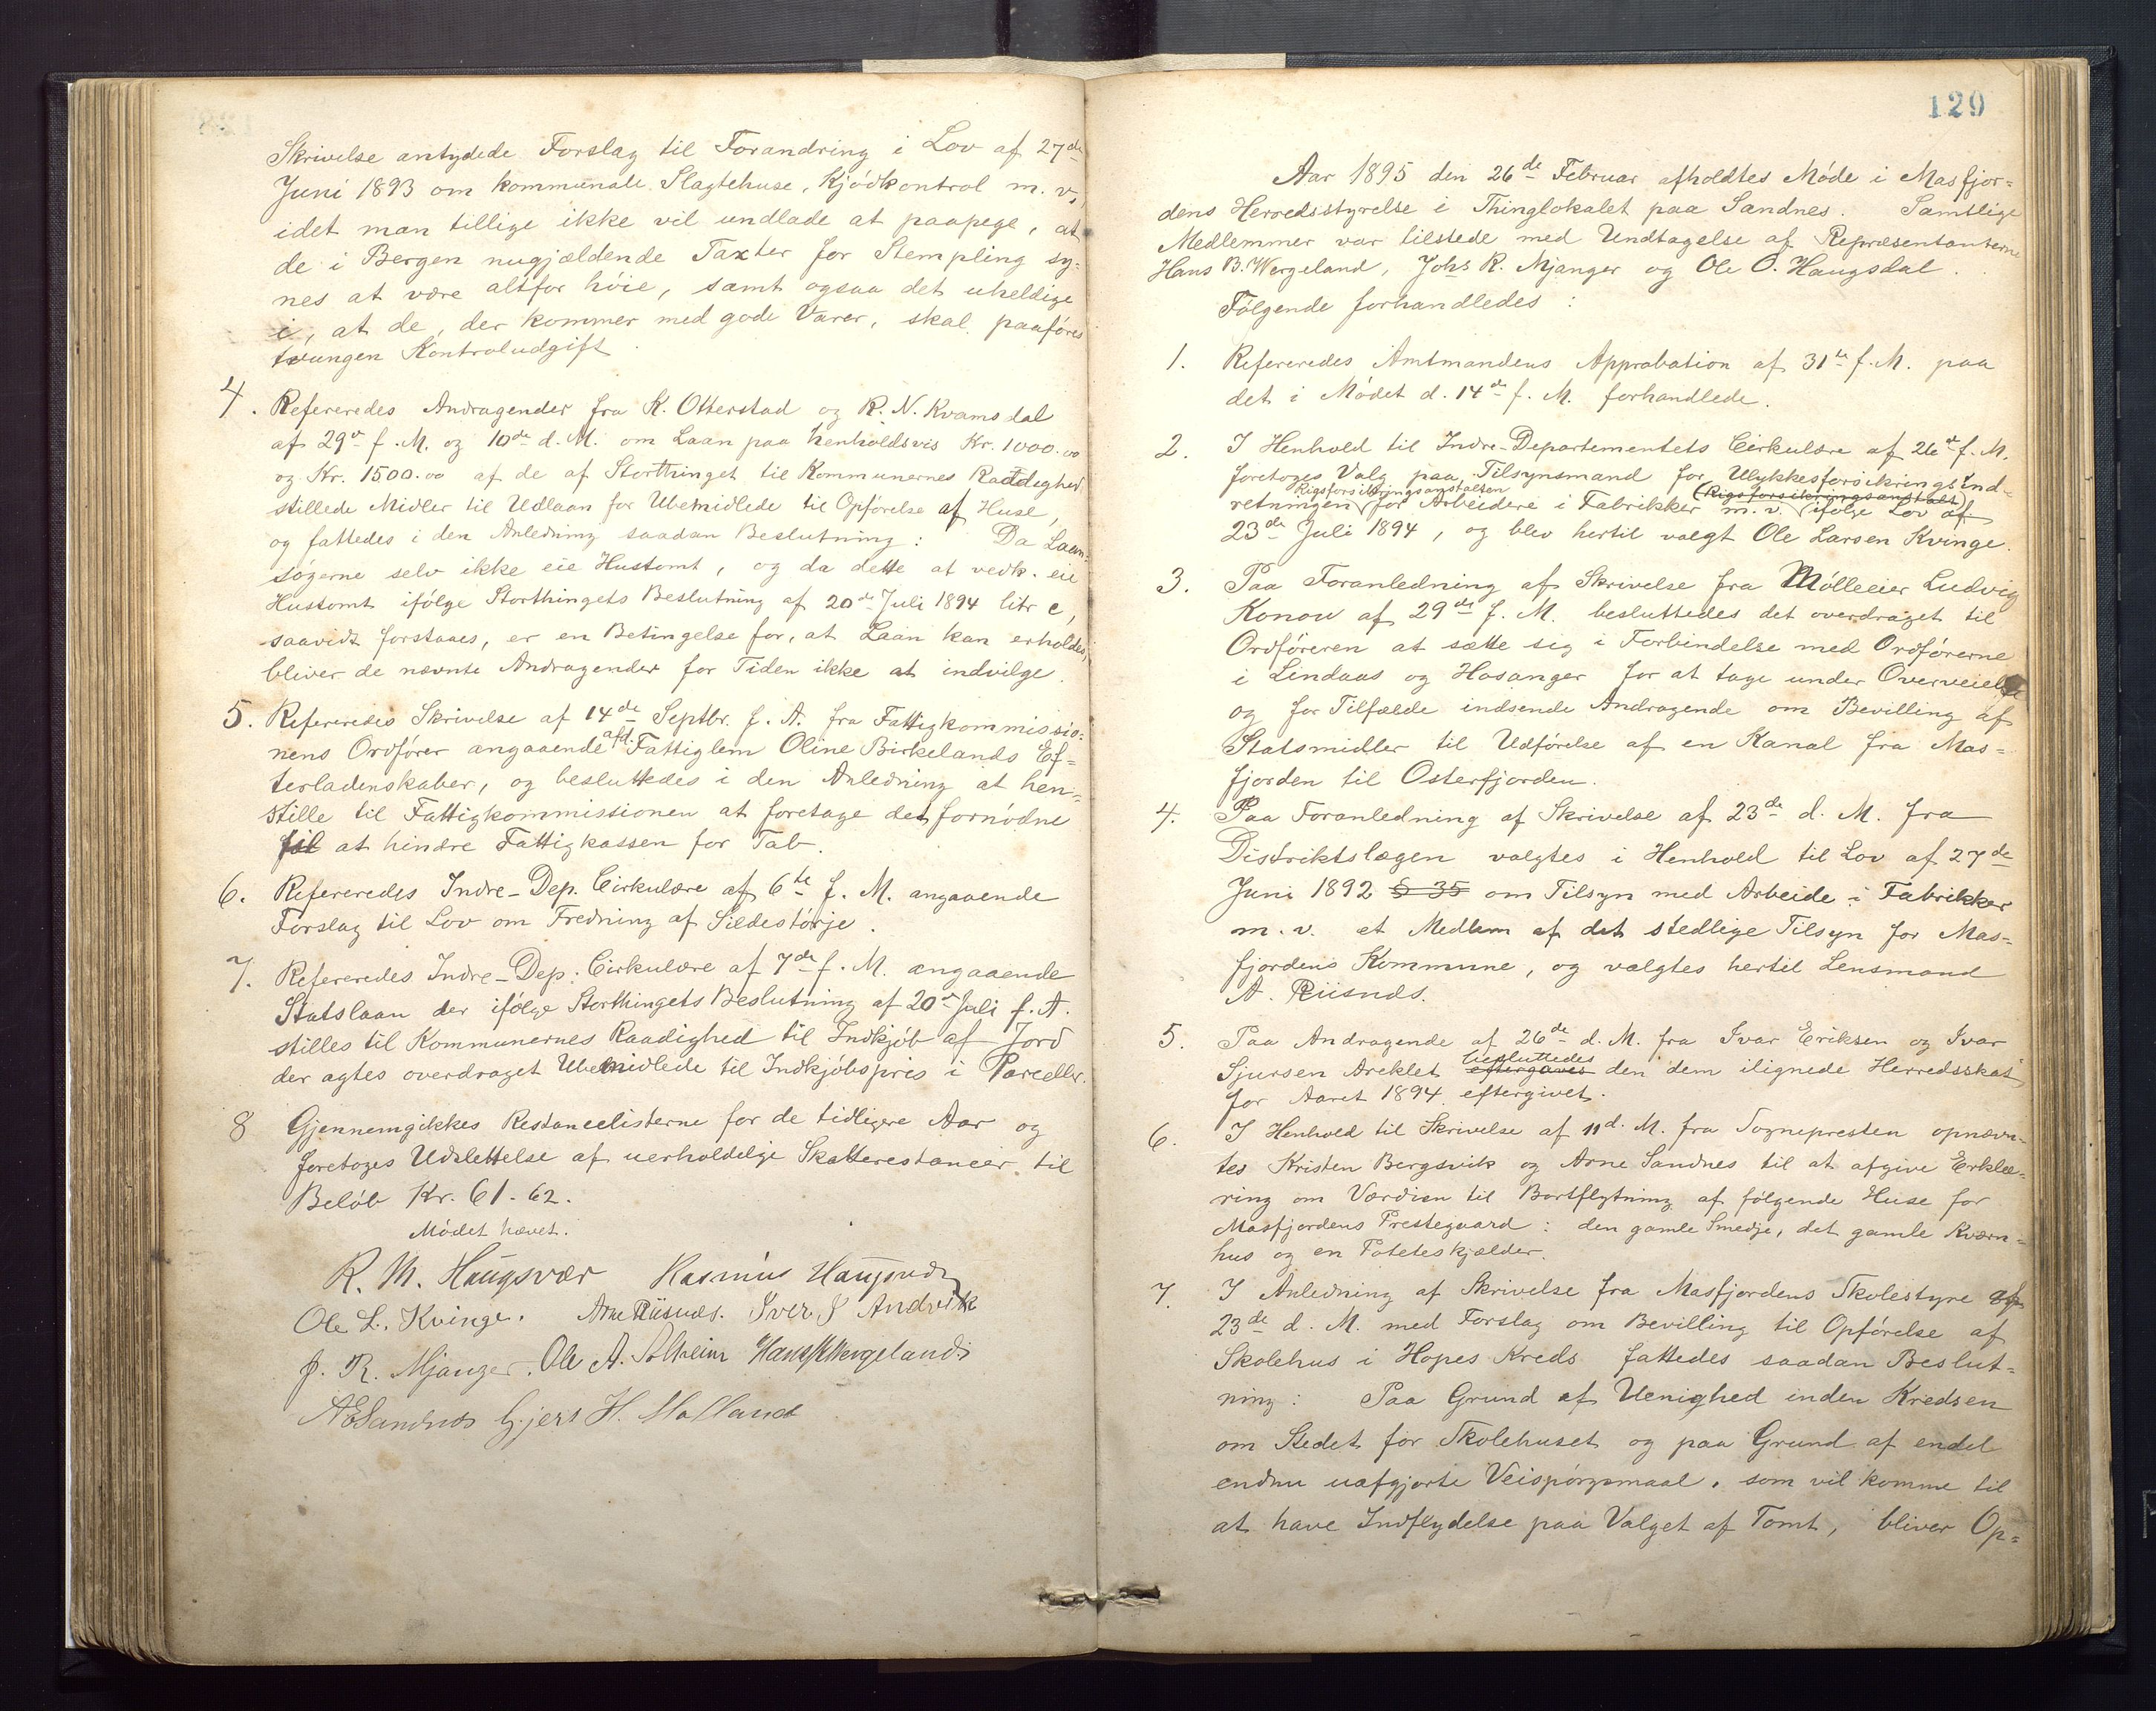 Skrivelse antydede Forslag til Forandring i Lov af 27de
Juni 1893 om kommunale Slagtehuse, Kjödkontrol m. v.,
idet man tillige ikke vil undlade at paapege, at
de i Bergen nugjældende Taxter for Stempling sy=
nes at være altfor höie, samt ogsaa det uheldige
i, at de, der kommer med gode Varer, skal paaföres
tvungen Kontroludgift.
4. Refereredes Andragender fra K. Otterstad og R. N. Kvamsdal
af 29de f. M. og 10de d. M. om Laan paa henholdsvis Kr. 1000.00
og Kr. 1500.00 af de af Storthinget til Kommunernes Raadighed
stillede Midler til Udlaan for Ubemidlede til Opförelse af Huse,
og fattedes i den Anledning saadan Beslutning: Da Laan=
sögerne selv ikke eie Hustomt, og da dette at vedk. eie
Hustomt ifölge Storthingets Beslutning af 20de Juli 1894 litr c,
saavidt forstaaes, er en Betingelse for, at Laan kan erholdes,
bliver de nævnte Andragender for Tiden ikke at indvilge.
5. Refereredes Skrivelse af 14de Septbr. f. A. fra Fattigkommissio=
nens Ordförer angaaende afd. Fattiglem Oline Birkelands Ef=
terladenskaber, og besluttedes i den Anledning at hen=
stille til Fattigkommissionen at foretage det fornödne
for at hindre Fattigkassen for Tab.
6. Refereredes Indre-Dep. Cirkulære af 6te f. M. angaaende
Forslag til Lov om Fredning af Sildestörje.
7. Refereredes Indre-Dep. Cirkulære af 7de f. M. angaaende
Statslaan der ifölge Storthingets Beslutning af 20de Juli f. A.
stilles til Kommunernes Raadighed til Indkjöb af Jord
der agtes overdraget Ubemidlede til Indkjöbspris i Parceller.
8 Gjennemgikkes Restancelisterne for de tidligere Aar og
foretoges Udslettelse af uerholdelige Skatterestancer til
Belöb Kr. 61.62.
Mödet hævet.
R. M. Haugsvær Rasmus Haugsvær
Ole L. Kvinge. Arne Riisnæs. Iver J Andvik
J. R. Mjanger. Ole A. Solheim Hans B Wergeland
A E Sandnæs Gjert H. Molland
129
Aar 1895 den 26de Februar afholdtes Möde i Masfjor=
dens Herredsstyrelse i Thinglokalet paa Sandnes. Samtlige
Medlemmer var tilstede med Undtagelse af Repræsentanterne
Hans B. Wergeland, Johs R. Mjanger og Ole O. Haugsdal.
Fölgende forhandledes:
1. Refereredes Amtmandens Approbation af 31te f. M. paa
det i Mödet d. 14de f. M. forhandlede.
2. I Henhold til Indre-Departementets Cirkulære af 26de f. M.
foretoges Valg paa Tilsynsmand for Ulykkesforsikringsind-
Rigsforsikringsanstalten (Rigsforsikringsanstalt)
retningen for Arbeidere i Fabrikker m. v. ifölge Lov af
23de Juli 1894, og blev hertil valgt Ole Larsen Kvinge.
3. Paa Foranledning af Skrivelse fra Mölleeier Ludvig
Konow af 29de f. M. besluttedes det overdraget til
Ordföreren at sætte sig i Forbindelse med Ordförerne
i Lindaas og Hosanger for at tage under Overveielse
og for Tilfælde indsende Andragende om Bevilling af
Statsmidler til Udförelse af en Kanal fra Mas=
fjorden til Osterfjorden.
4. Paa Foranledning af Skrivelse af 23de d. M. fra
Distriktslægen valgtes i Henhold til Lov af 27de
Juni 1892 § 35 om Tilsyn med Arbeide i Fabrikker
m. v. et Medlem af det stedlige Tilsyn for Mas=
fjordens Kommune, og valgtes hertil Lensmand
A. Riisnæs.
5. Paa Andragende af 26de d. M. fra Ivar Eriksen og Ivar
besluttedes
Sjursen Areklet eftergaves den dem ilignede Herredsskat
for Aaret 1894 eftergivet.
6. I Henhold til Skrivelse af 11 d. M. fra Sognepresten opnævn-
tes Kristen Bergsvik og Arne Sandnes til at afgive Erklæ-
ring om Værdien til Bortflytning af fölgende Huse for
Masfjordens Prestegaard: den gamle Smedje, det gamle Kværn=
hus og en Poteteskjælder.
7. I Anledning af Skrivelse fra Masfjordens Skolestyre af
23de d. M. med Forslag om Bevilling til Opförelse af
Skolehus i Hopes Kreds fattedes saadan Beslut=
ning: Paa Grund af Uenighed inden Kredsen
om Stedet for Skolehuset og paa Grund af endel
endnu uafgjorte Veispörgsmaal, som vil komme til
at have Indflydelse paa Valget af Tomt, bliver Op=